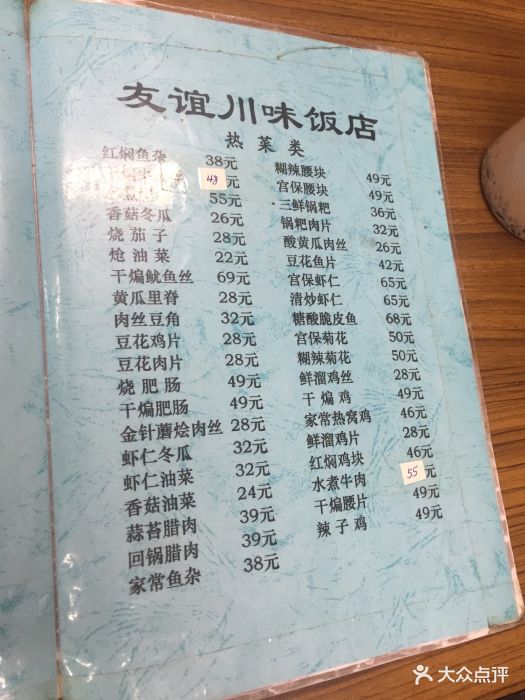 友谊川味饭店
热菜类
红焖鱼杂 38元
48元
55元
香菇冬瓜 26元
烧茄子 28元
炝油菜 22元
干煸鱿鱼丝 69元
黄瓜里脊 28元
肉丝豆角 32元
豆花鸡片 28元
豆花肉片 28元
烧肥肠 49元
干煸肥肠 49元
金针蘑烩肉丝 28元
虾仁冬瓜 32元
虾仁油菜 32元
香菇油菜 24元
蒜苔腊肉 39元
回锅腊肉 39元
家常鱼杂 38元
糊辣腰块 49元
宫保腰块 49元
三鲜锅粑 36元
锅粑肉片 32元
酸黄瓜肉丝 26元
豆花鱼片 42元
宫保虾仁 65元
清炒虾仁 65元
糖酸脆皮鱼 68元
宫保菊花 50元
糊辣菊花 50元
鲜溜鸡丝 28元
干煸鸡 49元
家常热窝鸡 46元
鲜溜鸡片 28元
红焖鸡块 46元
水煮牛肉 55元
干煸腰片 49元
辣子鸡 49元
大众点评